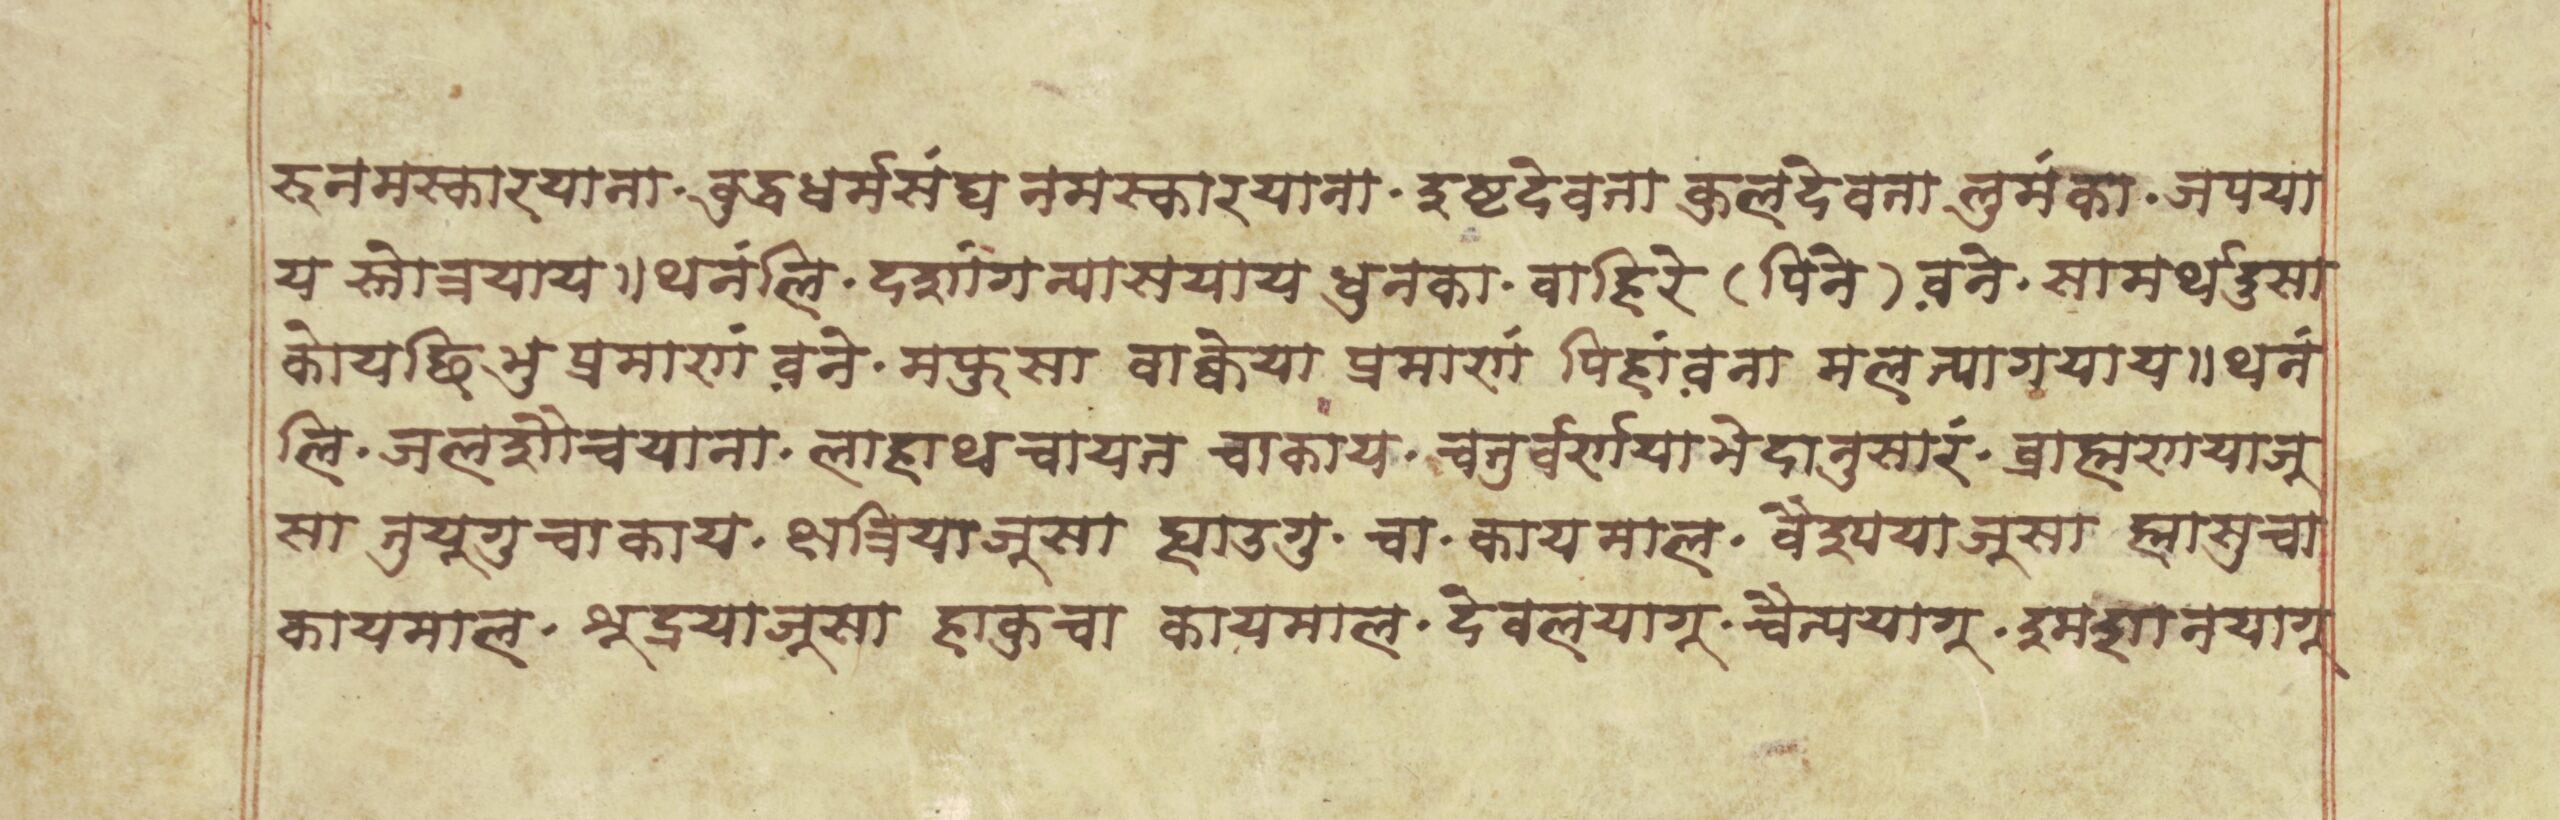 रुनमस्कारयाना. बुद्धधर्मसंघ नमस्कारयाना. इष्टदेवता कुलदेवता लुमंका. जपया
य स्तोत्रयाय॥थनंलि. दशांगन्यासयाय धुनका. वाहिरे (पिने) व़ने. सामर्थदुसा
कोयछि भु प्रमाणं व़ने. मफुसा वाक्वेया प्रमाणं पिहांव़ना मलत्यागयाय॥थनं
लि. जलशौचयाना. लाहाथ चायन चाकाय. चतुर्वर्णयाभेदानुसारं. ब्राह्मणयाजू
सा तुयूगुचाकाय. क्षत्रियाजूसा ह्याउगु. चा. कायमाल. वैश्ययाजूसा ह्मासुचा
कायमाल. शूद्रयाजूसा हाकुचा कायमाल. देवलयागू. चैत्ययागू. श्मशानयागू